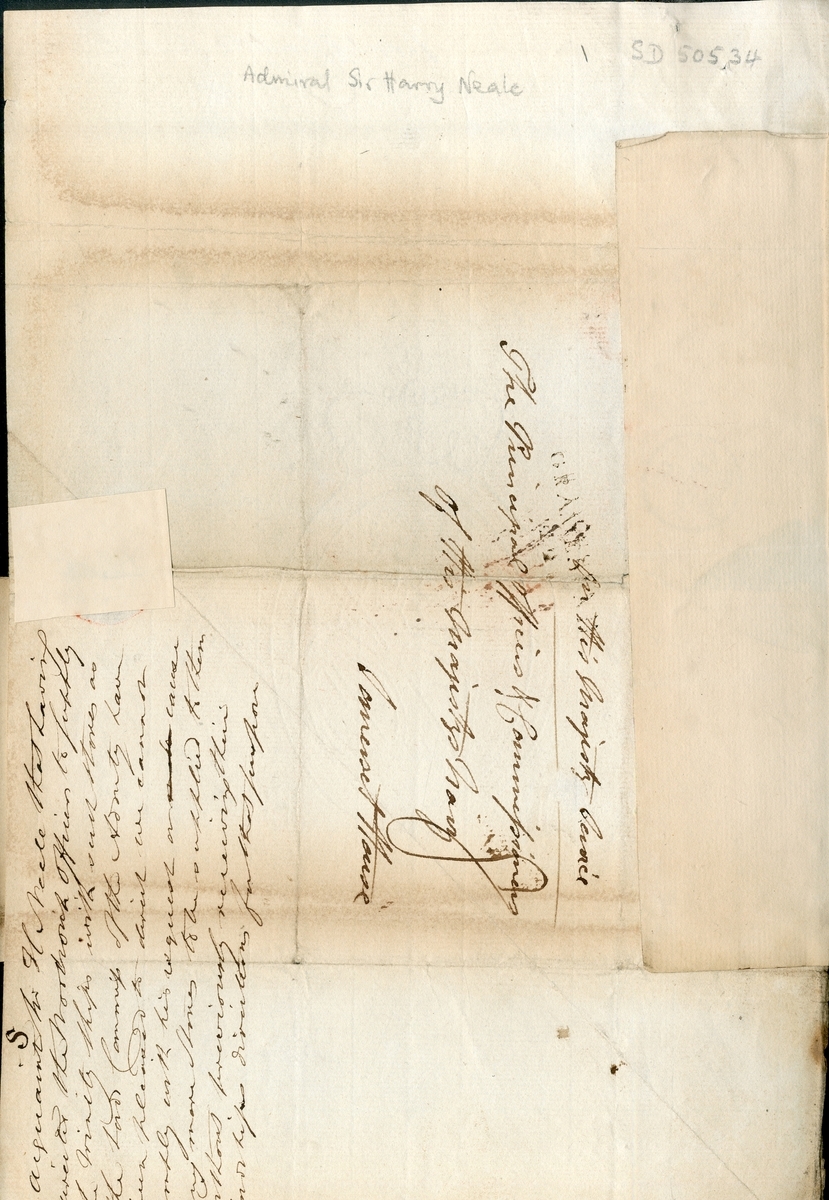 Admiral Sir Harry Neale
SD 505,34
For His Majestys Service
The Principal Officers & Commissioners
of His Majestys Navy
Somerset House
S
acquaint Sir H Neale that having
directed the Woolwich Officers to supply
Trinity Ships with such Stores as
the Lords Commrs of the Admty have
been pleased to direct we cannot
comply with his request or cause
any more Stores to be supplied to them
without previously receiving their
Lordships directions for that purpose